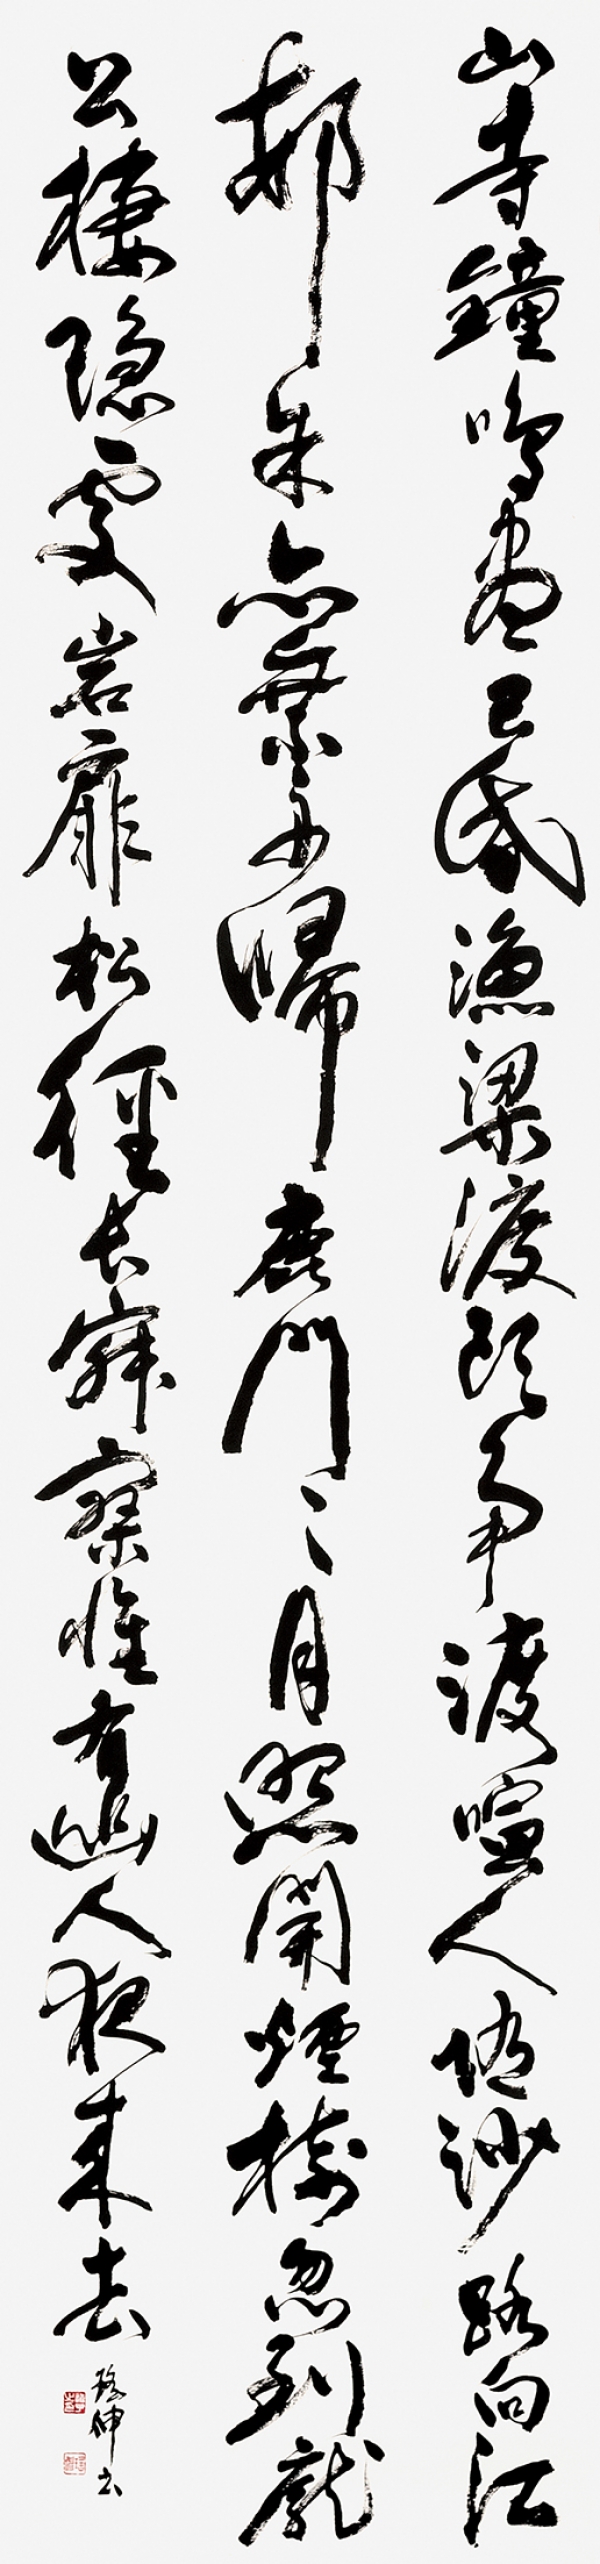 山寺鐘鳴晝已昏漁梁渡頭爭渡喧人随沙路向江
邨余亦乘舟歸鹿門〻月照開煙樹忽到龐
公棲隐處岩扉松徑長寂寥惟有幽人夜来去
伸书